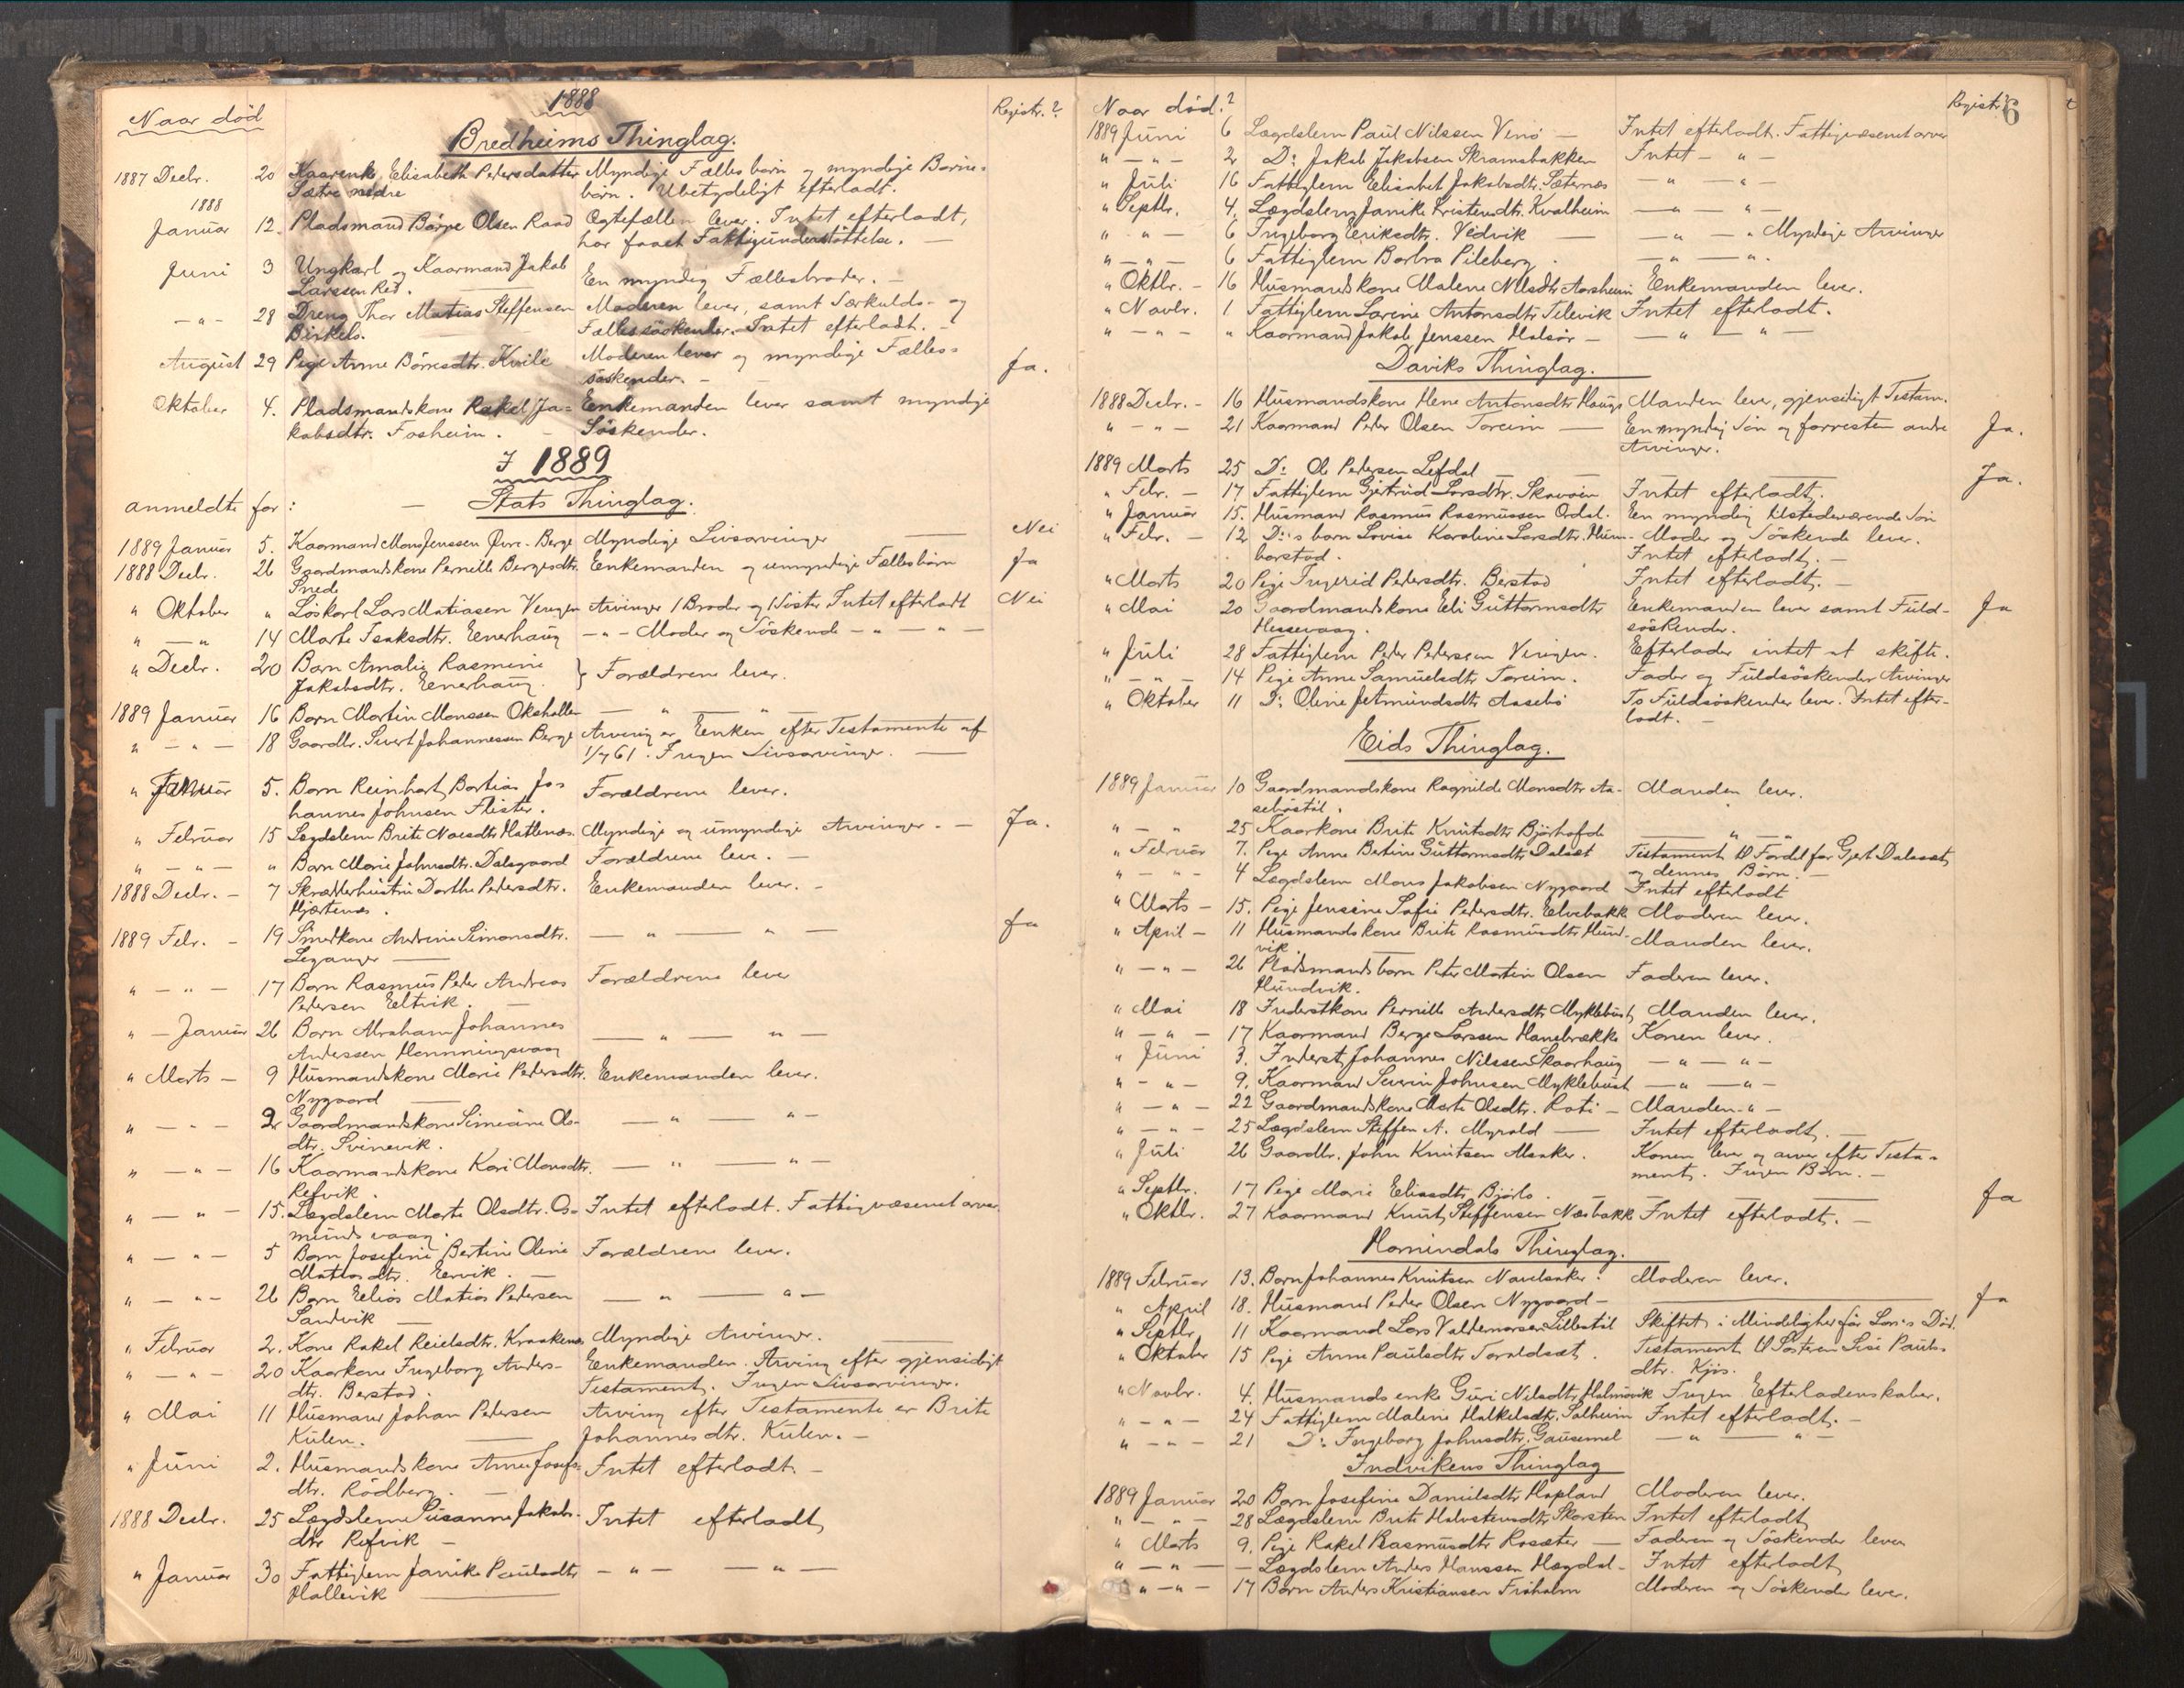 Naar død
1888
Registr.?
Bredheims Thinglag.
1887 Decbr. 20 Kaarenke Elisabeth Pedersdatter Myndige Fælles børn og myndige Børne-
Sætre nedre børn. Ubetydeligt efterladt.
1888
Januar 12. Pladsmand Børre Olsen Raad Ægtefællen lever. Intet efterladt,
har faaet Fattigunderstøttelse. —
Juni 3 Ungkarl og Kaarmand Jakob En myndig Fællesbroder. —
Larssen Red.
— " — 28 Dreng Thor Matias Steffensen Moderen lever, samt Særkulds- og
Birkelo. Fællessøskender. Intet efterladt. —
August 29 Pige Anne Børresdtr. Kvile Moderen lever og myndige Fælles= Ja.
søskender. —
Oktober 4. Pladsmandskone Rakel Ja= Enkemanden lever samt myndige
kobsdtr. Fosheim. — Søskender.
I 1889
anmeldte for: — Stats Thinglag.
1889 Januar 5. Kaarmand Mons Jenssen Øvre-Berge Myndige Livsarvinger — Nei
1888 Decbr. 26 Gaardmandskone Pernille Bergesdtr. Enkemanden og umyndige Fællesbørn Ja
" Oktober " Løskarl Lars Matiasen Vengen Arvinger 1 Broder og 1 Søster Intet efterladt Nei
" — " 14 Marte Isaksdtr. Enerhaug — " — Moder og Søskende — " — " —
" Decbr. 20 Barn Amalie Rasmine } Forældrene lever.
Jakobsdtr. Enerhaug.
1889 Januar 16 Barn Martin Monssen Oksholen — " — " —
" — " — 18 Gaardbr. Sivert Johannessen Berge Arving er Enken efter Testamente af
1/7 61. Ingen Livsarvinger. —
" Januar 5. Barn Reinhart Bartias Jo= Forældrene lever.
hannes Johnsen Flister.
" Februar 15 Lægdslem Brite Noesdtr Hatlenæs. Myndige og umyndige Arvinger. — Ja.
" — " — " Barn Marie Johnsdtr. Dalsgaard Forældrene leve. —
1888 Decbr. — 7 Skrædderhustru Dorthe Pedersdtr. Enkemanden lever. —
Hjertenæs.
1889 Febr. — 19 Smedkone Andrine Simonsdtr. — " — " — Ja
Leganger —
" — " — 17 Barn Rasmus Peder Andreas Forældrene lever
Pedersen Eltvik. —
" — Januar 26 Barn Abraham Johannes — " — " —
Anderssen Hennningsvaag
" Marts — 9 Husmandskone Marie Pedersdtr. Enkemanden lever.
Nygaard —
" — " — 2 Gaardmandskone Simeane Ols- — " — " —
dtr. Svinevik.
" — " — 16 Kaarmandskone Kari Monsdtr. — " — " —
Refvik.
" — " — 15. Lægdslem Marte Olsdtr. Os- Intet efterladt. Fattigvæsenet arver
mundsvaag.
" — " — 5 Barn Josefine Bertine Oline Forældrene lever.
Matiasdtr. Ervik. —
" — " — 26 Barn Elias Matias Pedersen — " — " —
Sandvik —
" Februar 2. Kone Rakel Reielsdtr. Kraakenes Myndige Arvinger. —
" — " — 20 Kaarkone Ingeborg Anders- Enkemanden. Arving efter gjensidigt
dtr. Berstad. Testament. Ingen Livsarvinger.
" Mai 11 Husmand Johan Pedersen Arving efter Testamente er Brite
Kulen. — Johannesdtr. Kulen. —
" Juni 2. Husmandskone Anne Josefs- Intet efterladt. —
dtr. Rødberg. —
1888 Decbr. 25 Lægdslem Susanne Jakobs- Intet efterladt
dtr Refvik —
" Januar 30 Fattiglem Janike Paulsdtr — " — — " —
Hallevik —
Naar død.?
Registr?
6
1889 Juni 6 Lægdslem Paul Nilssen Venø — Intet efterladt. Fattigvæsenet arver
" — " — 2 Do Jakob Jakobsen Skramsbakken Intet — " —
" Juli 16 Fattiglem Elisabet Jakobsdtr. Sæternæs — " — " —
" Septbr. 4. Lægdslem Janike Kristensdtr. Kvalheim — " — " —
" " — 6 Ingeborg Eriksdtr. Vedvik — — " — " Myndige Arvinger
" — " — 6 Fattiglem Barbra Pileberg. — " — ".
" Oktbr. — 16 Husmandskone Malene Nilsdtr Aarsheim Enkemanden lever.
" Novbr. 1 Fattiglem Sorine Antonsdtr Televik Intet efterladt.
" — " — " Kaarmand Jakob Jenssen Halsør — — " — " —
Daviks Thinglag.
1888 Decbr. — 16 Husmandskone Anne Antonsdtr Haugs Manden lever, gjensidigt Testam.
" — " — 21 Kaarmand Peder Olsen Torheim — En myndig Søn og forresten andre Ja.
Arvinger.
1889 Marts 25 Do Ole Pedersen Lefdal — Ja.
" Febr. — 17 Fattiglem Gjertrud Larsdtr. Skavøen Intet efterladt.
" Januar 15. Husmand Rasmus Rasmussen Ordal. En myndig tilstedeværende Søn
" Febr. — 12 Do's barn Lovise Karoline Larsdtr. Hum- Moder og Søskende lever.
barstad. Intet efterladt. —
" Marts 20 Pige Ingerid Pedersdtr. Berstad Intet efterladt. —
" Mai 20 Gaardmandskone Eli Guttormsdtr Enkemanden lever samt Fuld- Ja
Hessevaag. søskender.
" Juli 28 Fattiglem Peder Pederssen Vengen. Efterlader intet at skifte.
" — " — 14 Pige Anne Samuelsdtr Torheim. Fader og Fuldsøskender Arvinger
" Oktober 11 Do Oline Asmundsdtr Aasebø To Fuldsøskender lever. Intet efter-
ladt. —
Eids Thinglag.
1889 Januar 10 Gaardmandskone Ragnilde Monsdtr Aa- Manden lever.
sebøstøl.
" — " 25 Kaarkone Brite Knutsdtr Bjørhofde — " — "
" Februar 7. Pige Anne Bertine Guttormsdtr Dalsæt Testament til Fordel for Gjert Dalsæt
og dennes Børn. —
" — " — 4 Lægdslem Mons Jakobsen Nygaard Intet efterladt
" Marts — 15. Pige Jensine Sofie Pedersdtr. Elvebakk Moderen lever.
" April — 11 Husmandskone Brite Rasmusdtr Hund- Manden lever.
vik.
" — " — 26 Pladsmandsbarn Peter Martin Olsen Faderen lever.
Hundvik.
" Mai 18 Inderstkone Pernille Andersdtr Myklebust Manden lever.
" — " — 17 Kaarmand Berge Larssen Hanebrække Konen lever.
" Juni 3. Inderst Johannes Nilssen Skaarhaug — " — " —
" — " — 9. Kaarmand Severin Johnsen Myklebust — " — " —
" — " — 22 Gaardmandskone Marte Olsdtr. Roti — Manden — " —
" — " — 25 Lægdslem Steffen A. Myrold — Intet efterladt. —
" Juli 26 Gaardbr. John Knutsen Alsaker. Konen lever og arver efter Testa-
ment. Ingen Børn. —
" Septbr. 17 Pige Marie Eliasdtr Bjørlo. — Ja
" Oktbr. 27 Kaarmand Knut Steffensen Næsbakk Intet efterladt. —
Hornindals Thinglag.
1889 Februar 13. Barn Johannes Knutsen Navelsaker. Moderen lever.
" April 18. Husmand Peder Olsen Nygaard — — Ja
" Septbr 11 Kaarmand Lars Valdemarsen Lillestøl Skiftet i Mindelighed før Lars's Død.
" Oktober 15 Pige Anne Paulsdtr Toraldsæt. Testament til Søsteren Lise Pauls-
dtr. Kjøs.
" Novbr. 4. Husmands enke Guri Nilsdtr Holmøvik Ingen Efterladenskaber.
" — " — 24 Fattiglem Malene Halkelsdtr. Solheim Intet efterladt. —
" — " — 21 Do Ingeborg Johnsdtr. Gausemel — " — " —
Indvikens Thinglag
1889 Januar 20 Barn Josefine Danielsdtr Hopland Moderen lever.
" — " — 28 Lægdslem Brite Halvstensdtr Skarsten Intet efterladt
" Marts 9. Pige Rakel Rasmusdtr Rosæter — Faderen og Søskender lever
" — " — — Lægdslem Anders Hanssen Hægdal — Intet efterladt
" — " — 17 Barn Anders Kristiansen Friholm Moderen og Søskender lever.